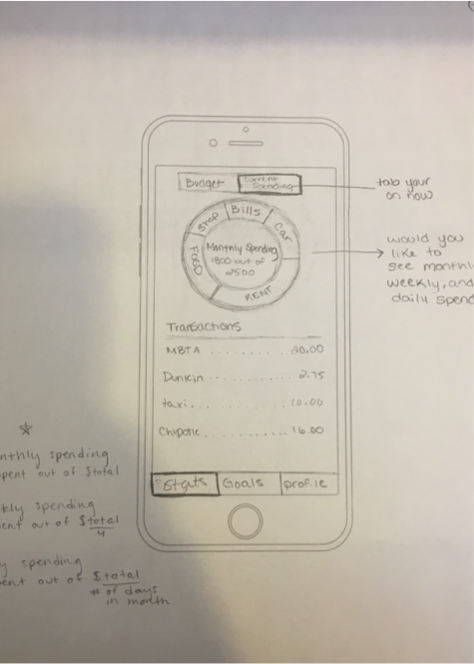 Budget
Current
Spending
tab your
on now
Shop
Bills
Car
Food
RENT
Monthly Spending
1800 out of
2500
would you
like to
see monthl
weekly, and
daily spend
Transactions
MBTA ......... 20.00
Dunkin ......... 2.75
taxi ......... 10.00
Chipotle ......... 16.00
Stats
Goals
profile
nthly spending
pent out of $total
kly spending
ent out of $total
4
y spending
ent out of $total
# of days
in month